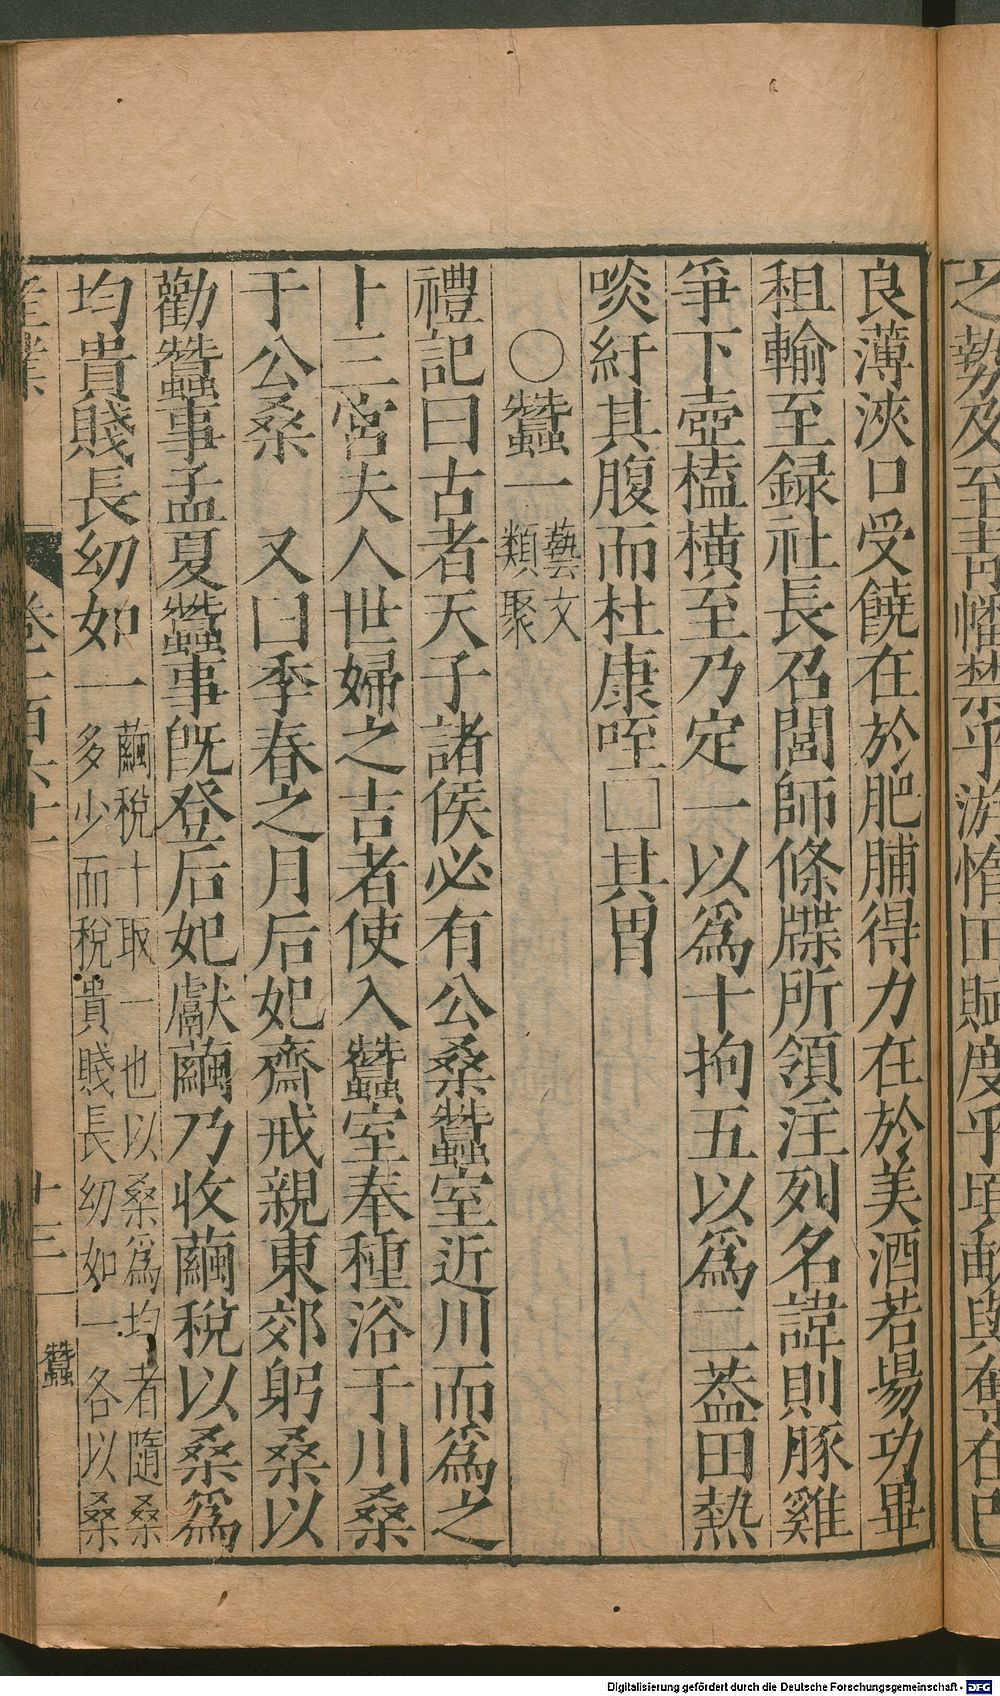 之勢及至青幡禁乎游惰田賦度乎頃畝與奪在邑
良薄浹口受饒在於肥脯得力在於美酒若場功畢
租輸至録社長召閭師條牒所領注列名諱則豚雞
爭下壺榼橫至乃定一以爲十拘五以爲二葢田熱
啖紆其腹而杜康咥□其胃
○蠶一藝文
類聚
禮記曰古者天子諸侯必有公桑蠶室近川而爲之
卜三宮夫人世婦之吉者使入蠶室奉種浴于川桑
于公桑　又曰季春之月后妃齋戒親東郊躬桑以
勸蠶事孟夏蠶事旣登后妃獻繭乃收繭稅以桑爲
均貴賤長幼如一繭稅十取一也以桑爲均者隨桑
多少而稅貴賤長幼如一各以桑
産業
卷二百六十
廿三
蠶
Digitalisierung gefördert durch die Deutsche Forschungsgemeinschaft - DFG